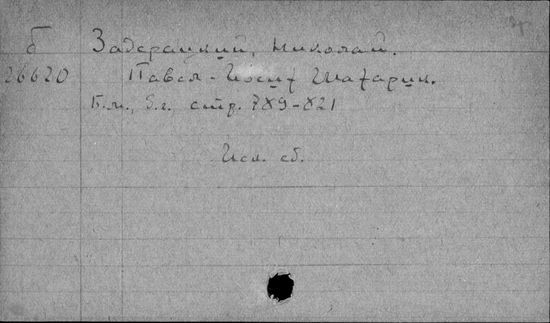 б Задерацкий, Николай.
26620 Павел-Иосиф Шафарик.
Б.м., Б.г. стр. 789-821
Исл. сб.